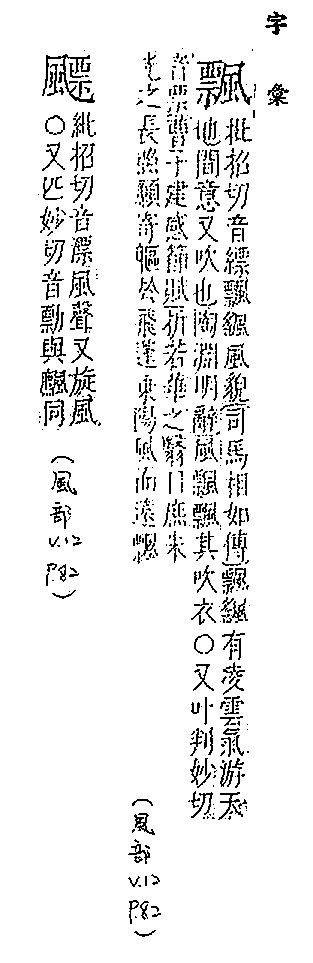 字彙
飄
批招切音縹飄飄風貌司馬相如傳飄飄有凌雲氣游天
地間意又吹也陶淵明辭風飄飄其吹衣○又叶判妙切
音票曹子建感節賦折若華之翳日庶朱
光之長照願寄軀於飛蓬 陽風而遠飄
(風部
V.12
P.82)
飃
紕招切音漂風聲又旋風
○又匹妙切音勡與飄同
(風部
V.12
P.82)